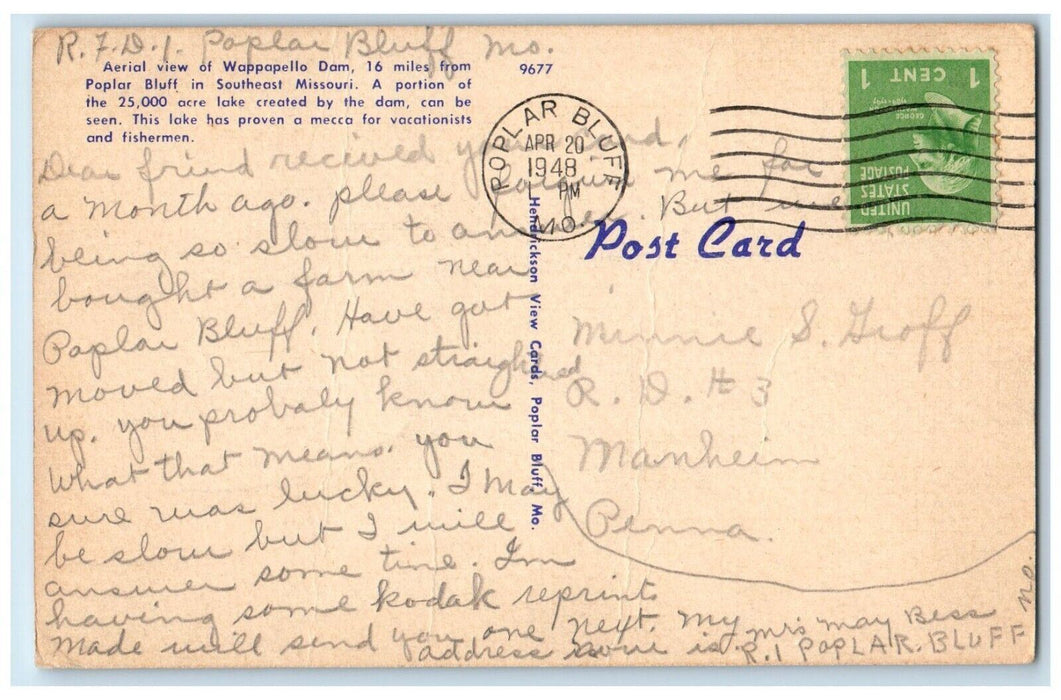 R.F.D.1. Poplar Bluff Mo.
Aerial view of Wappapello Dam, 16 miles from
Poplar Bluff in Southeast Missouri. A portion of
the 25,000 acre lake created by the dam, can be
seen. This lake has proven a mecca for vacationists
and fishermen.
9677
POPLAR BLUFF
APR 20
1948
PM
MO.
1 CENT 1
UNITED
STATES
POSTAGE
Post Card
Hendrickson View Cards, Poplar Bluff, Mo.
Dear friend recived your card,
a month ago. please me for
being so slow to answer. But we
bought a farm near
Poplar Bluff. Have got
moved but not straighned
up. you probaly know
what that means. you
sure was lucky. I may
be slow but I will
answer some time. Im
having some kodak reprints
made will send you one next. My
address now is Mrs May Bess
R.1 POPLAR. BLUFF
Mo.
Minnie S. Groff
R. D. # 3
Manheim
Penna.